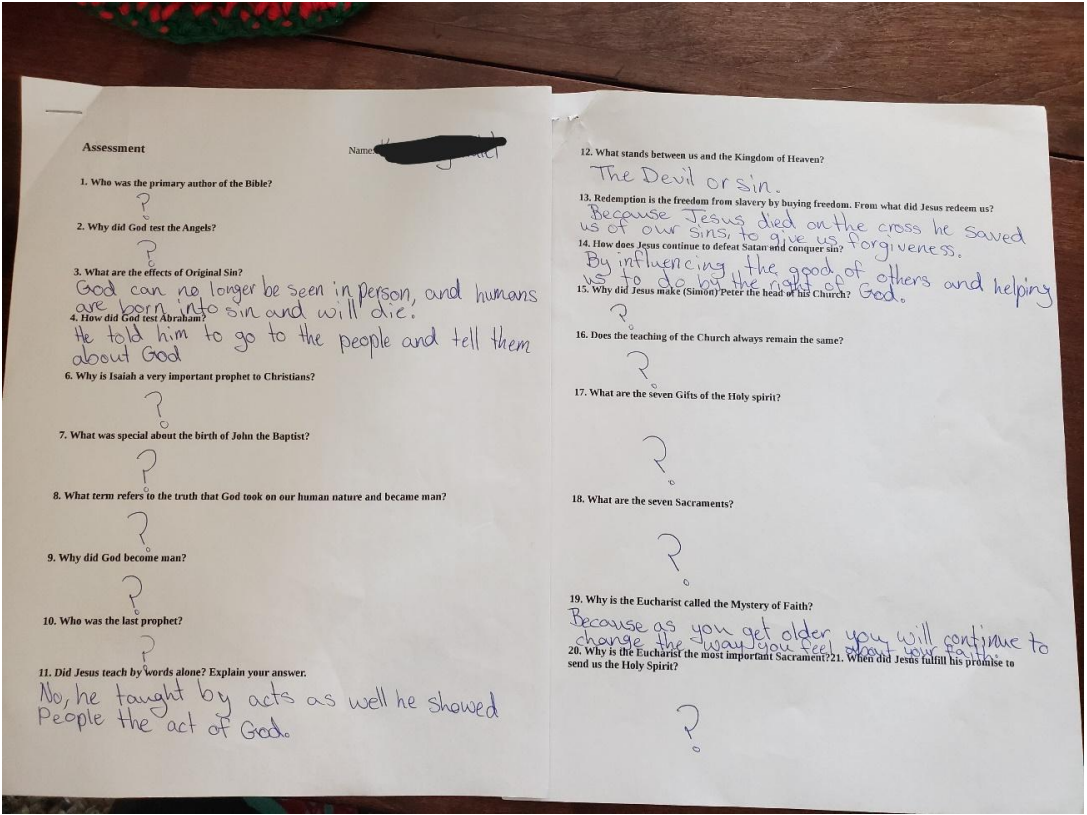 Assessment
Name:
1. Who was the primary author of the Bible?
?
2. Why did God test the Angels?
?
3. What are the effects of Original Sin?
God can no longer be seen in person, and humans
are born into sin and will die.
4. How did God test Abraham?
He told him to go to the people and tell them
about God
6. Why is Isaiah a very important prophet to Christians?
?
7. What was special about the birth of John the Baptist?
?
8. What term refers to the truth that God took on our human nature and became man?
?
9. Why did God become man?
?
10. Who was the last prophet?
?
11. Did Jesus teach by words alone? Explain your answer.
No, he taught by acts as well he showed
People the act of God.
12. What stands between us and the Kingdom of Heaven?
The Devil or sin.
13. Redemption is the freedom from slavery by buying freedom. From what did Jesus redeem us?
Because Jesus died on the cross he saved
us of our sins, to give us forgiveness.
14. How does Jesus continue to defeat Satan and conquer sin?
By influencing the good of others and helping
us to do by the right of God.
15. Why did Jesus make (Simon) Peter the head of his Church?
?
16. Does the teaching of the Church always remain the same?
?
17. What are the seven Gifts of the Holy spirit?
?
18. What are the seven Sacraments?
?
19. Why is the Eucharist called the Mystery of Faith?
Because as you get older, you will continue to
change the way you feel about your faith.
20. Why is the Eucharist the most important Sacrament?21. When did Jesus fulfill his promise to
send us the Holy Spirit?
?